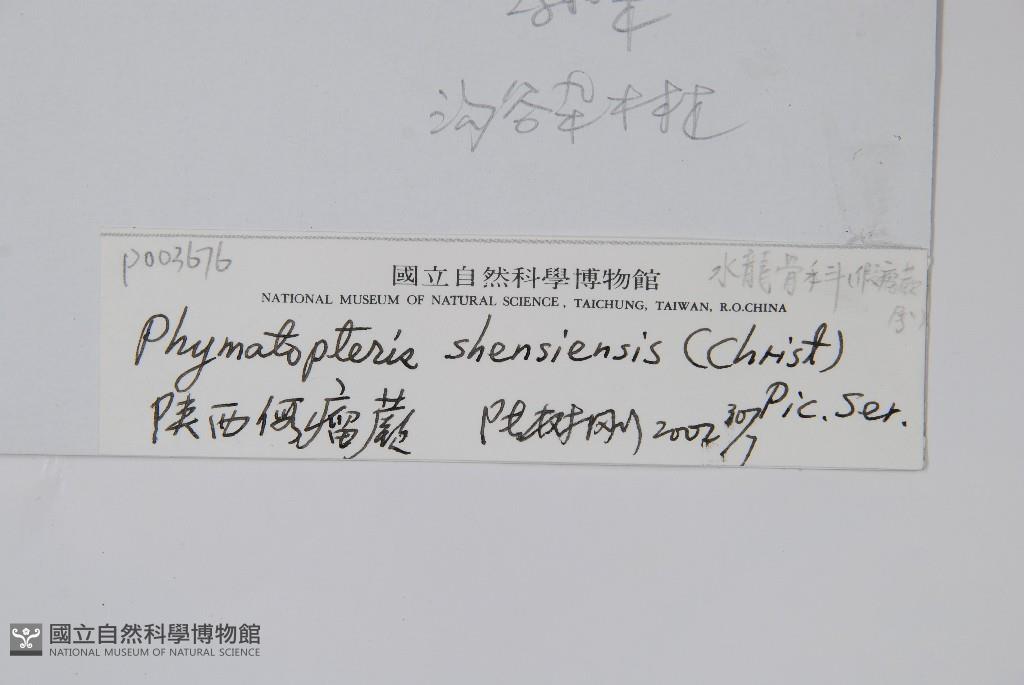 沟谷杂木林
P003676
國立自然科學博物館
水龍骨科(假瘤蕨
NATIONAL MUSEUM OF NATURAL SCIENCE, TAICHUNG, TAIWAN, R.O.CHINA
屬)
Phymatopteris shensiensis (Christ)
Pic. Ser.
陕西假瘤蕨 陆树刚 2002 30/7
國立自然科學博物館
NATIONAL MUSEUM OF NATURAL SCIENCE